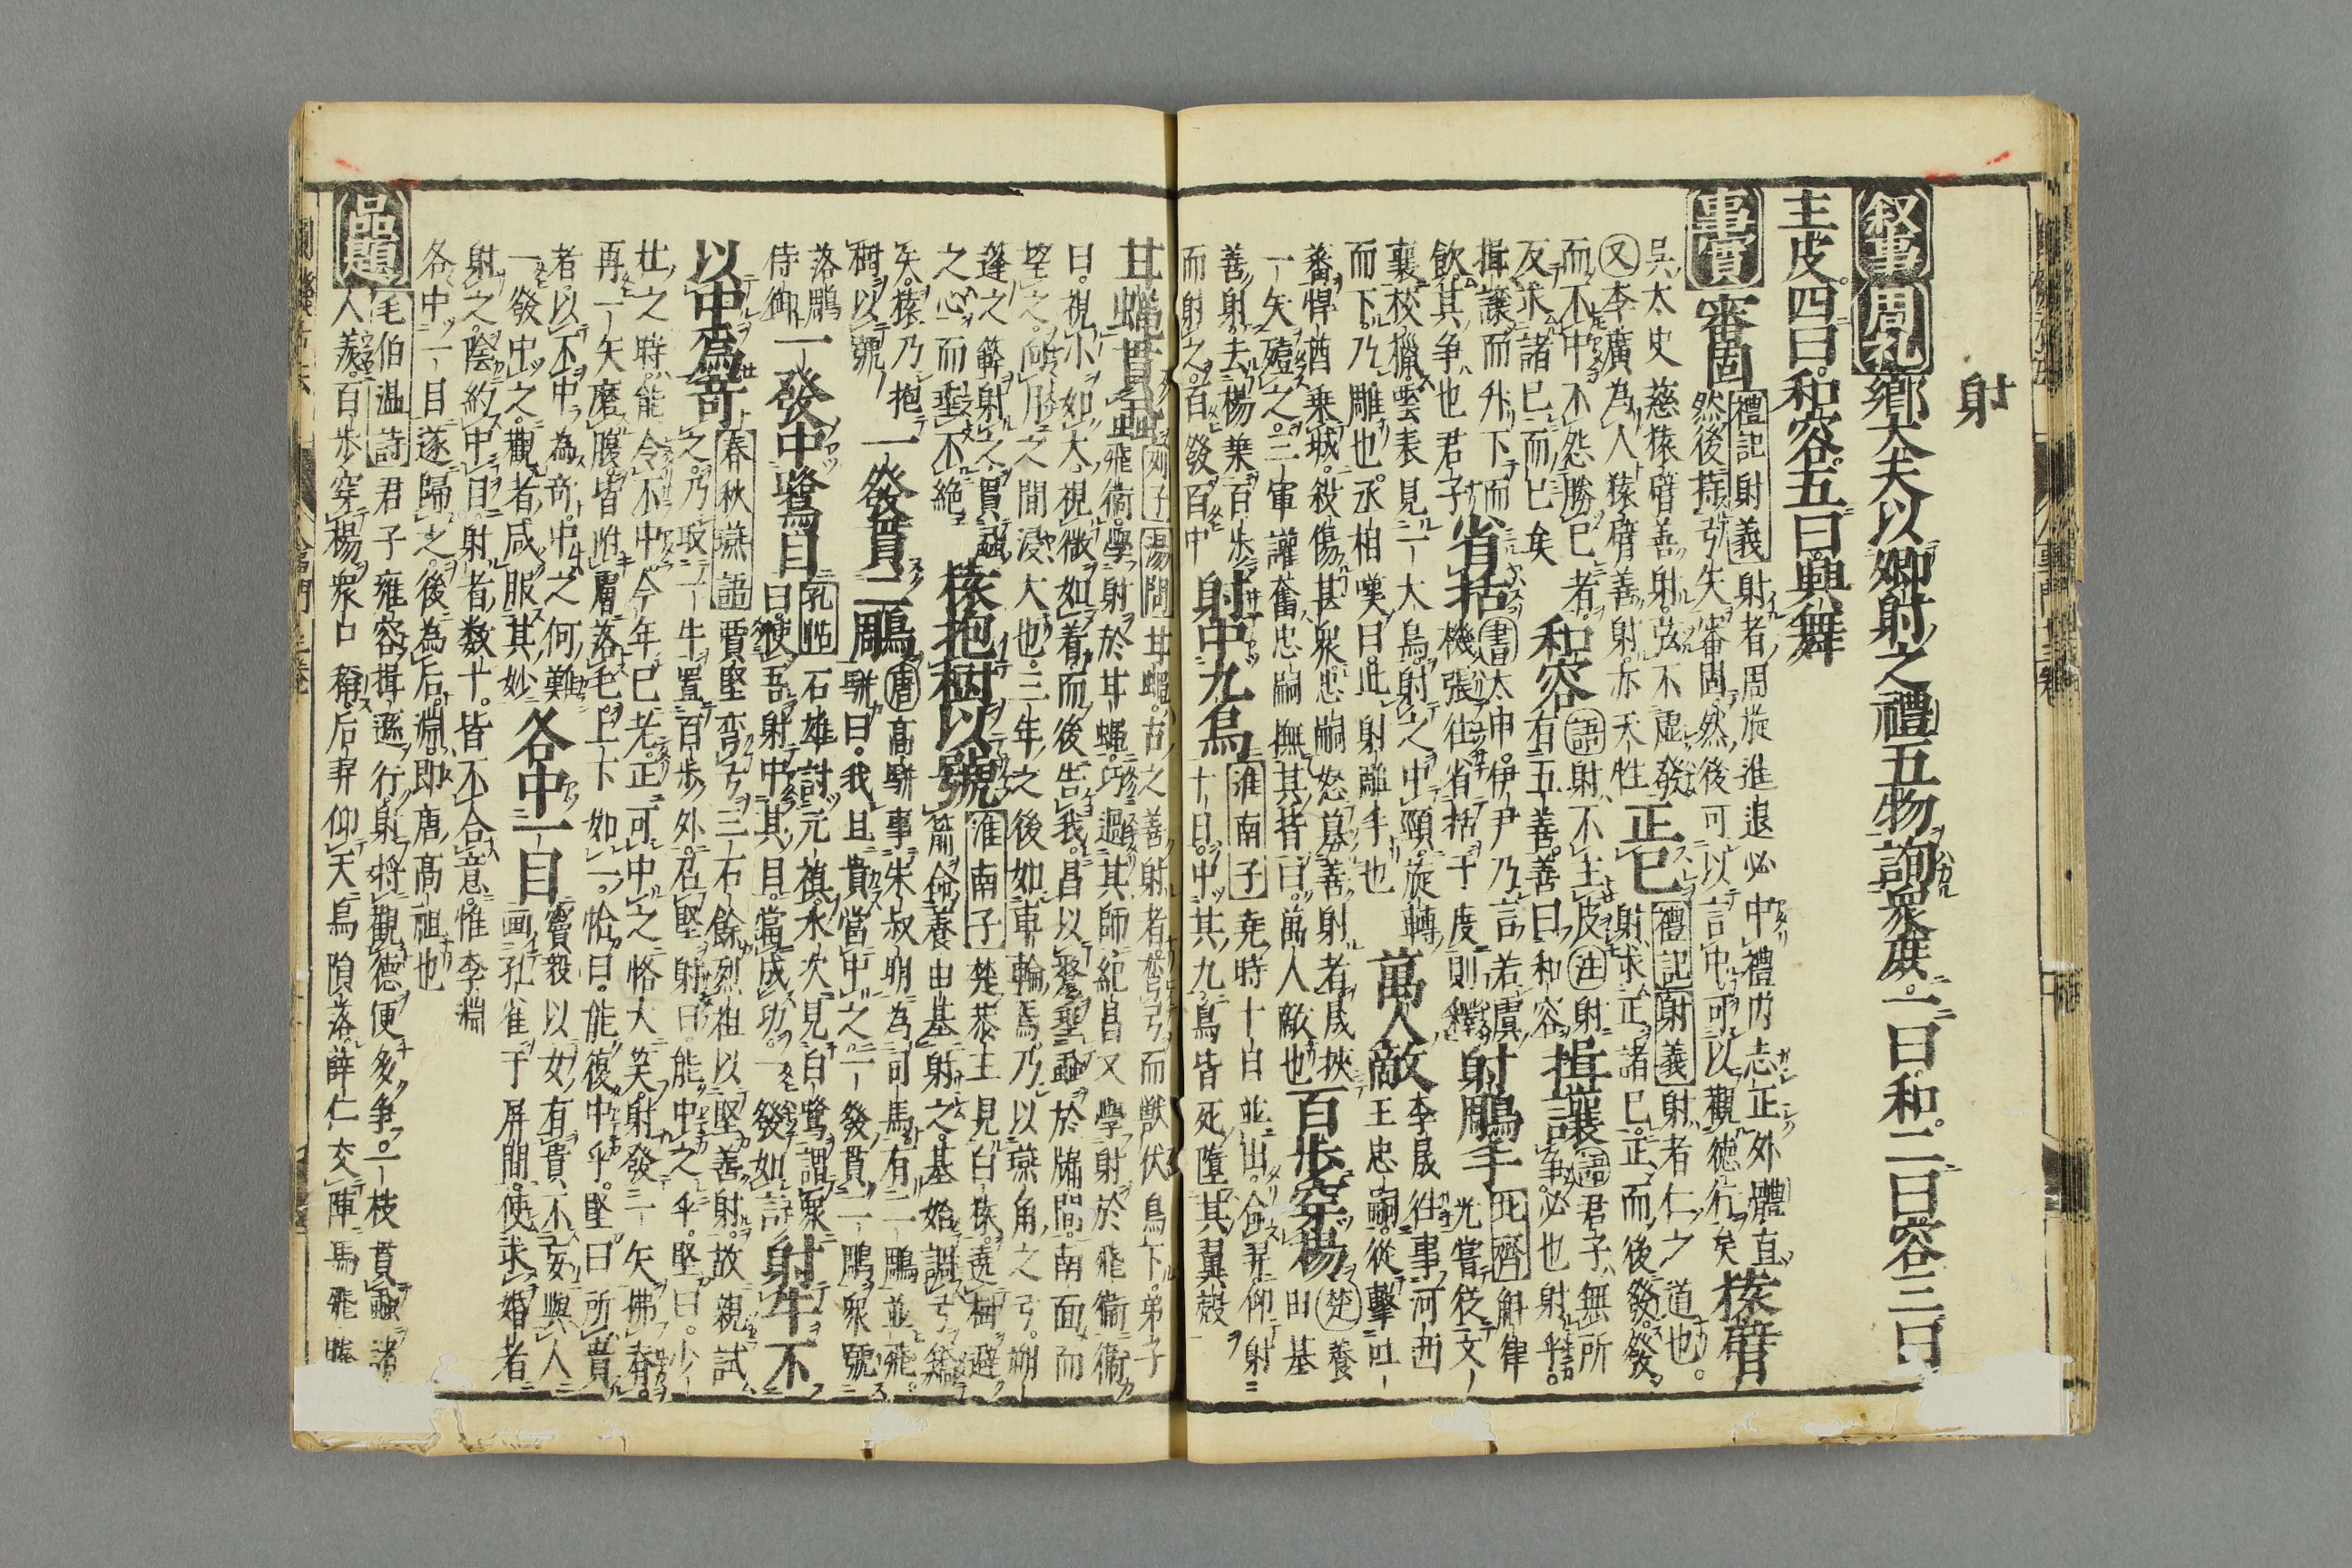 射
叙事 周礼 鄉大夫以鄉射之禮五物詢衆庶。一曰和。二曰容三曰
主皮四曰。和容。五曰興舞
事實 審固 禮記射義 射者周旋進退必中禮內志正外體直
然後持弓矢審固然後可以言中可以觀德行矣 猿臂
吳太史慈猿臂善射。弦不虛發 正已 禮記射義 射者仁之道也。
又 李廣為人猿臂善射亦天性 射求正諸已。已正而後發。發
而不中不怨勝已者。 和容 語 射不主皮 註 射
反求諸已而已矣 有五善。善曰和容 揖讓 語 君子無所
爭。必也射乎。
揖讓而升下而
飲。其爭也君子 省括 書 太甲。伊尹乃言若虞
機張往省括于度則釋 射鵰手 北齊 斛律
光嘗從文
襄校獵。雲表見一大鳥射之中頸。旋轉
而下。乃雕也。丞相嘆曰。此射雕手也 萬人敵 李晟往事河西
王忠嗣。從擊吐
蕃悍酋乗城。殺傷甚衆忠嗣怒募善射者。晟挾
一矢殪之。三軍讙奮忠嗣撫其背曰。萬人敵也 百步穿楊 楚 養
由基
善射去楊葉百步
而射之。百發百中 射中九烏 淮南子 堯時十日並出。命羿仰射
十日。中其九烏皆死墮其翼
甘蠅貫蝨 列子 湯問 甘蠅。古之善射者。彀弓而獸伏鳥下。弟子
曰。飛衛。學射於甘蠅。巧過其師。紀昌又學射於飛衛衛
曰。視小如大。視微如著而後告我。昌以氂垂蝨於牖間。南面而
望之。旬月之間浸大也。三年之後如車輪焉。乃以燕角之弓。朔
蓬之簳射之。貫蝨
之心而垂不絕 猿抱樹以號 淮南子 楚恭王見白猿。遶樹避
箭命養由基射之。基始調弓矯
矢。猿乃抱
樹以號 一發貫二鵰 唐 高駢事朱叔明為司馬有二鵰並飛。
駢曰。我且貴當中之。一發貫二鵰衆號
落鵰
侍御 一發中鷺目 孔帖 石雄討元禎。水次見白鷺謂衆
曰。使吾射中其目。當成功。一發如言 射牛不
以中為奇 春秋燕語 賈堅弯弓三石餘烈祖以堅善射。故親試
之。乃取一牛置百步外。召堅射曰。能中之乎。堅曰。少
壮之時能令不中今年已老。正可中之恪大笑。射發一矢拂脊。
再一矢磨腹皆附膚落毛。上下如一。恪曰。能復中乎。堅曰所貴
者。以不中為奇。中之何難 各中一目 竇毅以女有貴不妄與人
画孔雀于屏間。使求婚者
一發中之。觀者咸服其妙
射之。陰約中目。射者数十。皆不合意。惟李淵
各中一目遂歸之。後為后。淵即唐高祖也
品題 毛伯温詩 君子雍容揖遜行。射將觀德便多爭。一枝貫蝨諸
人羨。百步穿楊衆口稱。后羿仰天烏隕落。薛仁交陣馬飛騰